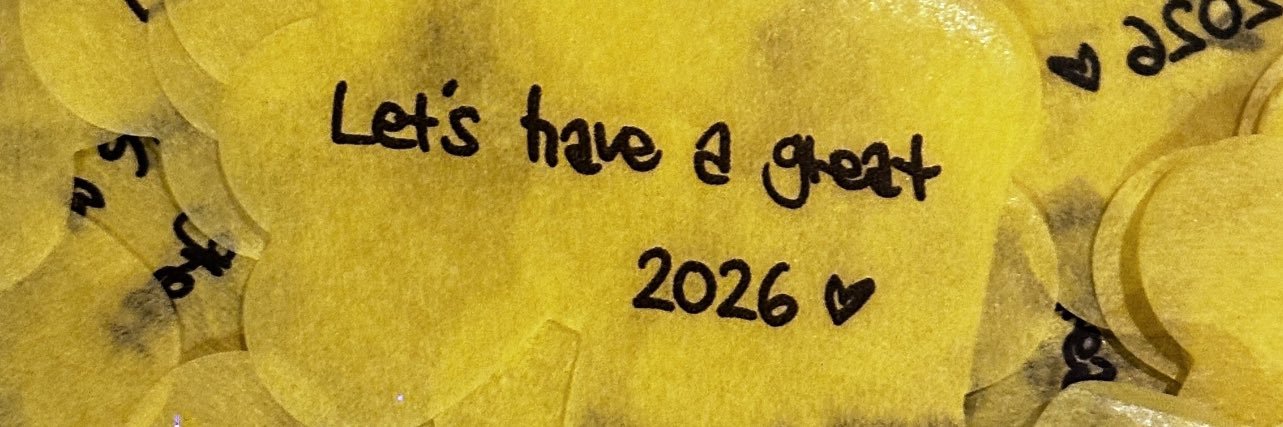 Let's have a great
2026 ♥
2026 ♥